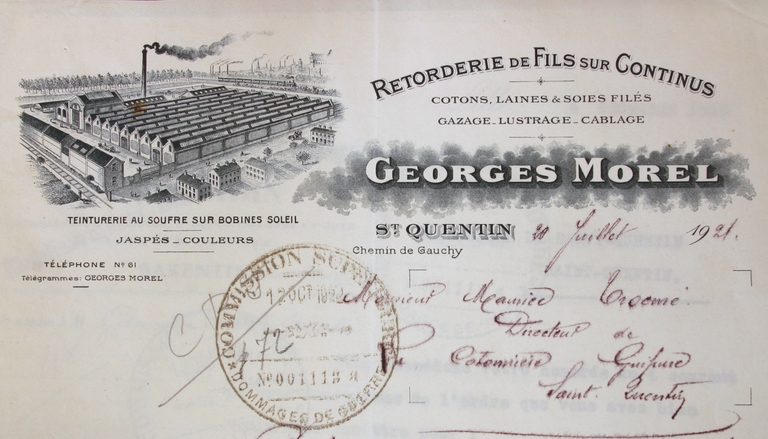 RETORDERIE DE FILS SUR CONTINUS
COTONS, LAINES & SOIES FILÉS
GAZAGE_LUSTRAGE_CABLAGE
GEORGES MOREL
TEINTURERIE AU SOUFRE SUR BOBINES SOLEIL
JASPÉS_COULEURS
TÉLÉPHONE Nº 61
Télégrammes: GEORGES MOREL
ST QUENTIN 20 Juillet 1921.
Chemin de Gauchy
COMMISSION
12 OCT
472
Nº001113
DOMMAGES DE GUERRE
Monsieur Maurice
Directeur de
La Cotonnière Guipure
Saint. Quentin